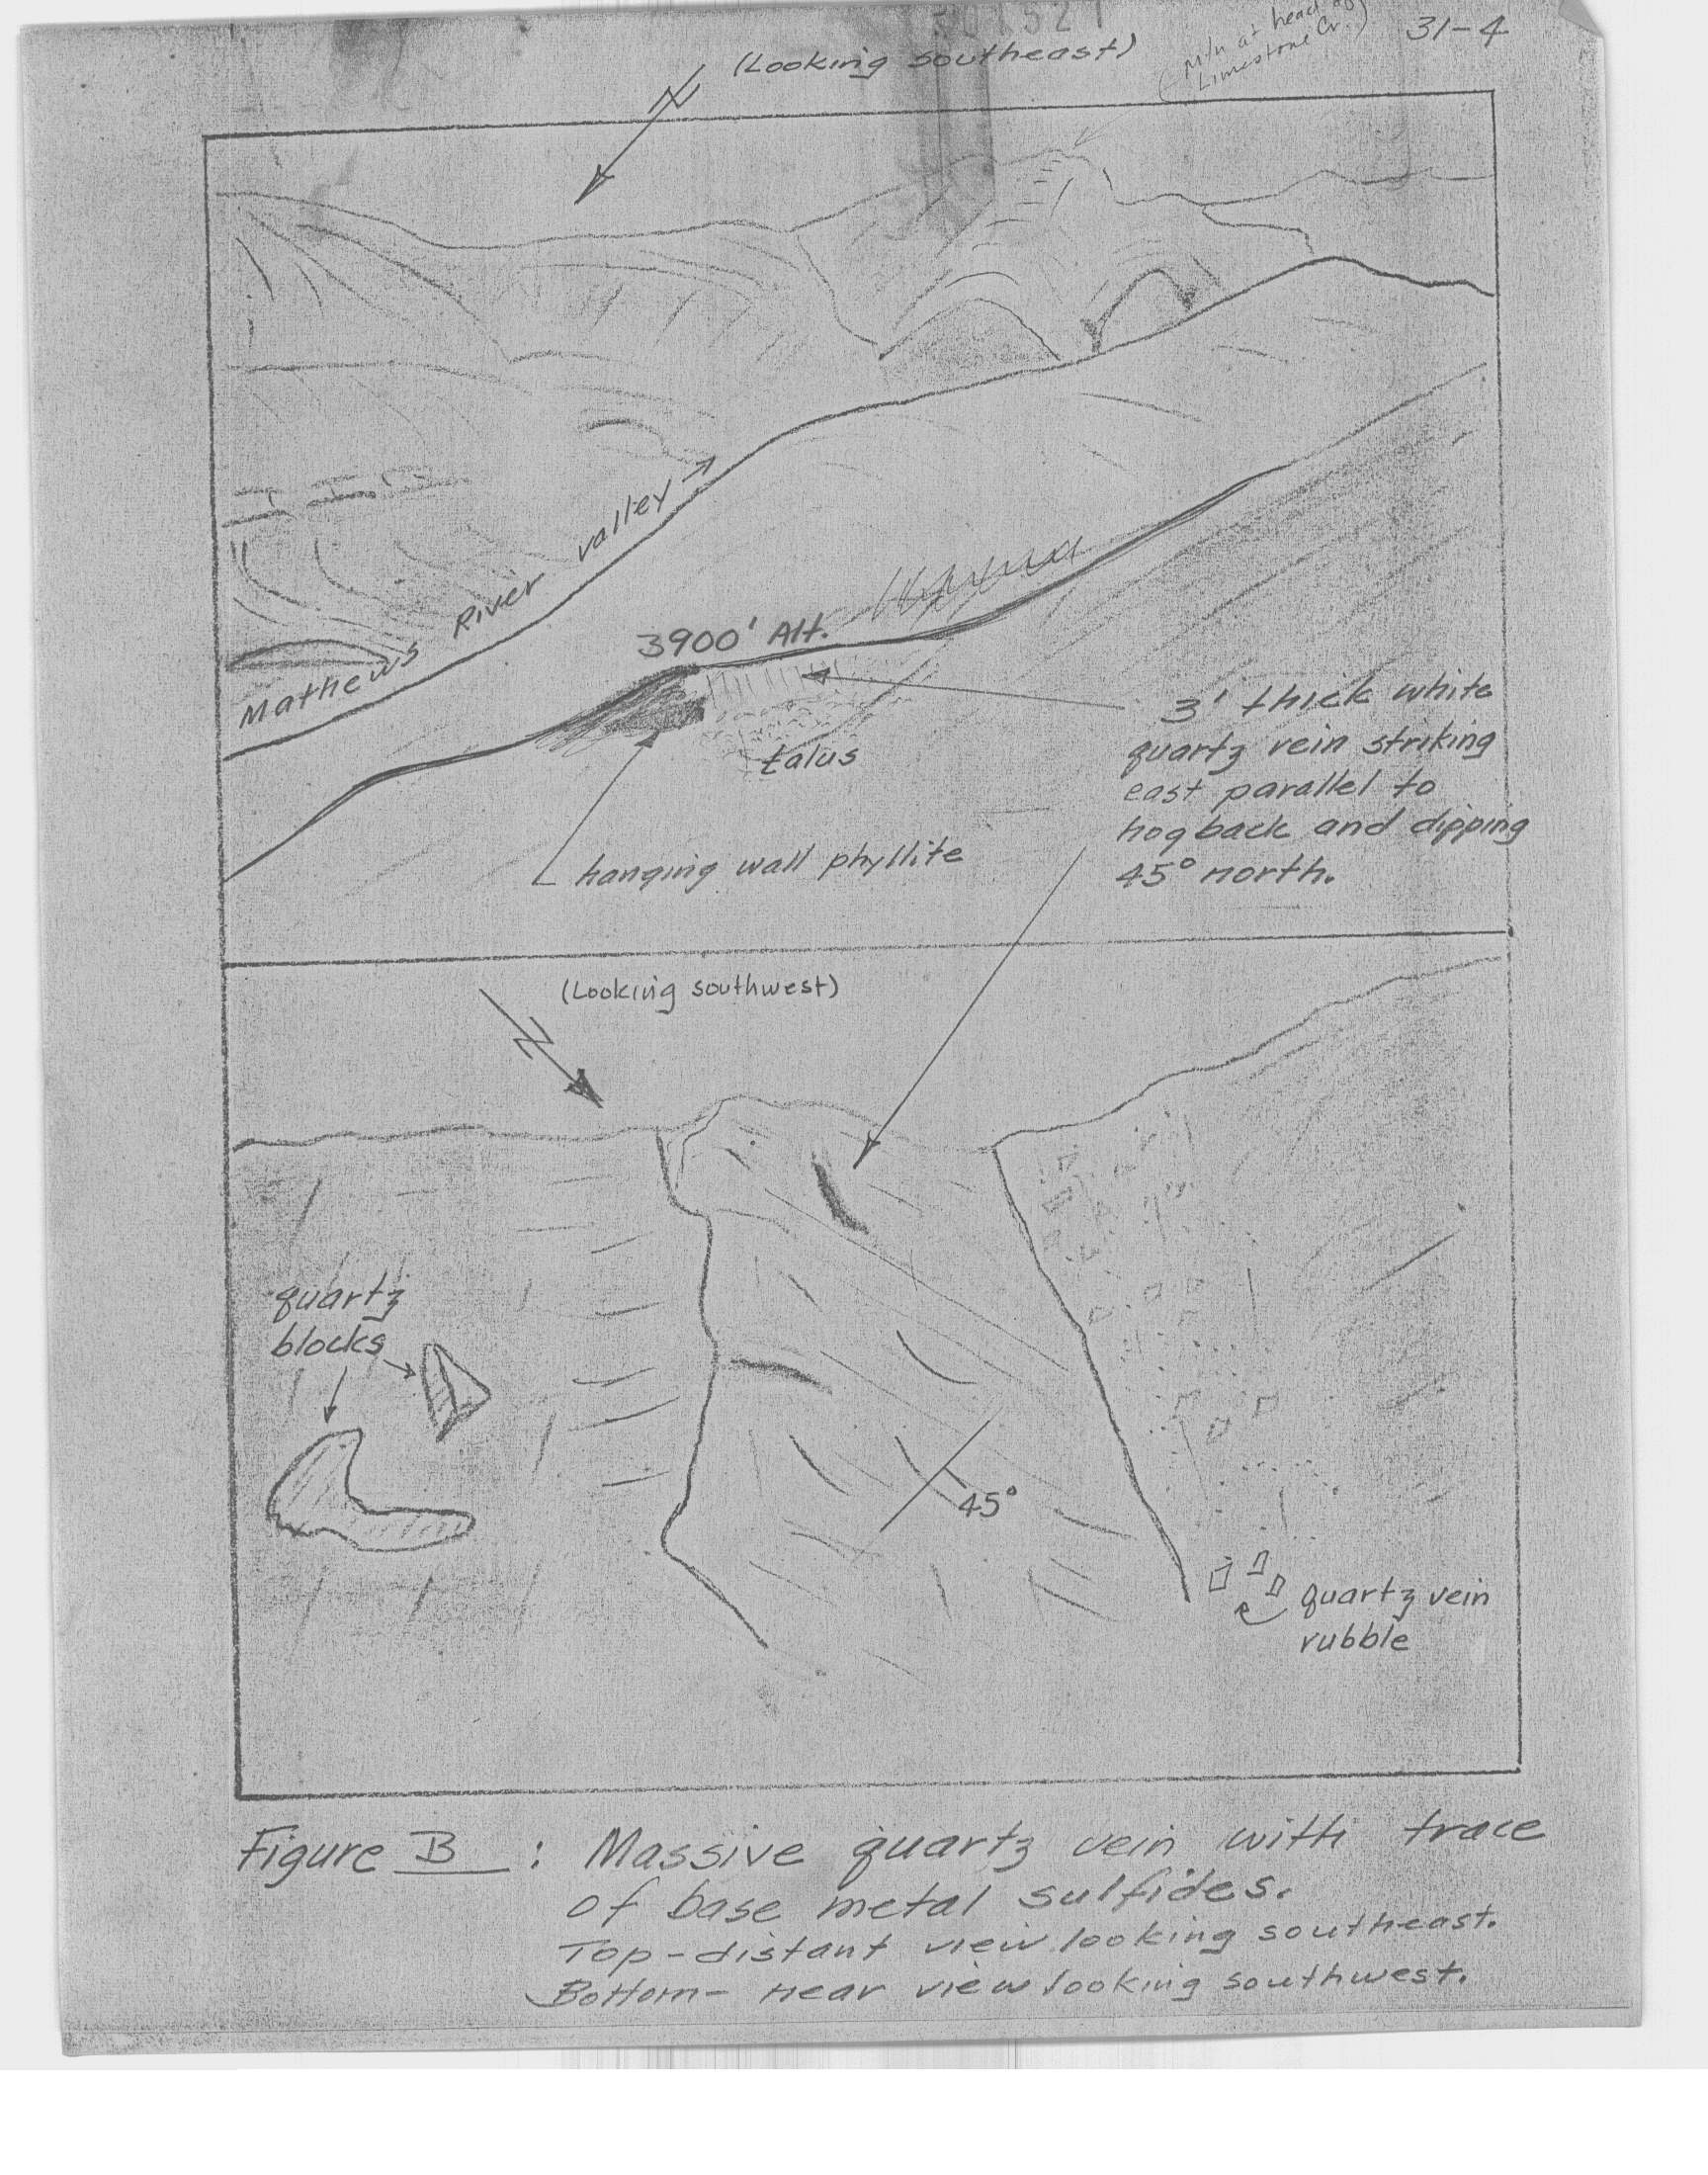 31-4
(Looking southeast)
(Mtn at head of
Limestone Cr.)
N
Mathews River valley
3900' Alt.
talus
3' thick white
quartz vein striking
east parallel to
hogback and dipping
45° north.
hanging wall phyllite
(Looking southwest)
N
quartz
blocks
45°
quartz vein
rubble
Figure B : Massive quartz vein with trace
of base metal sulfides.
Top - distant view looking southeast.
Bottom - near view looking southwest.